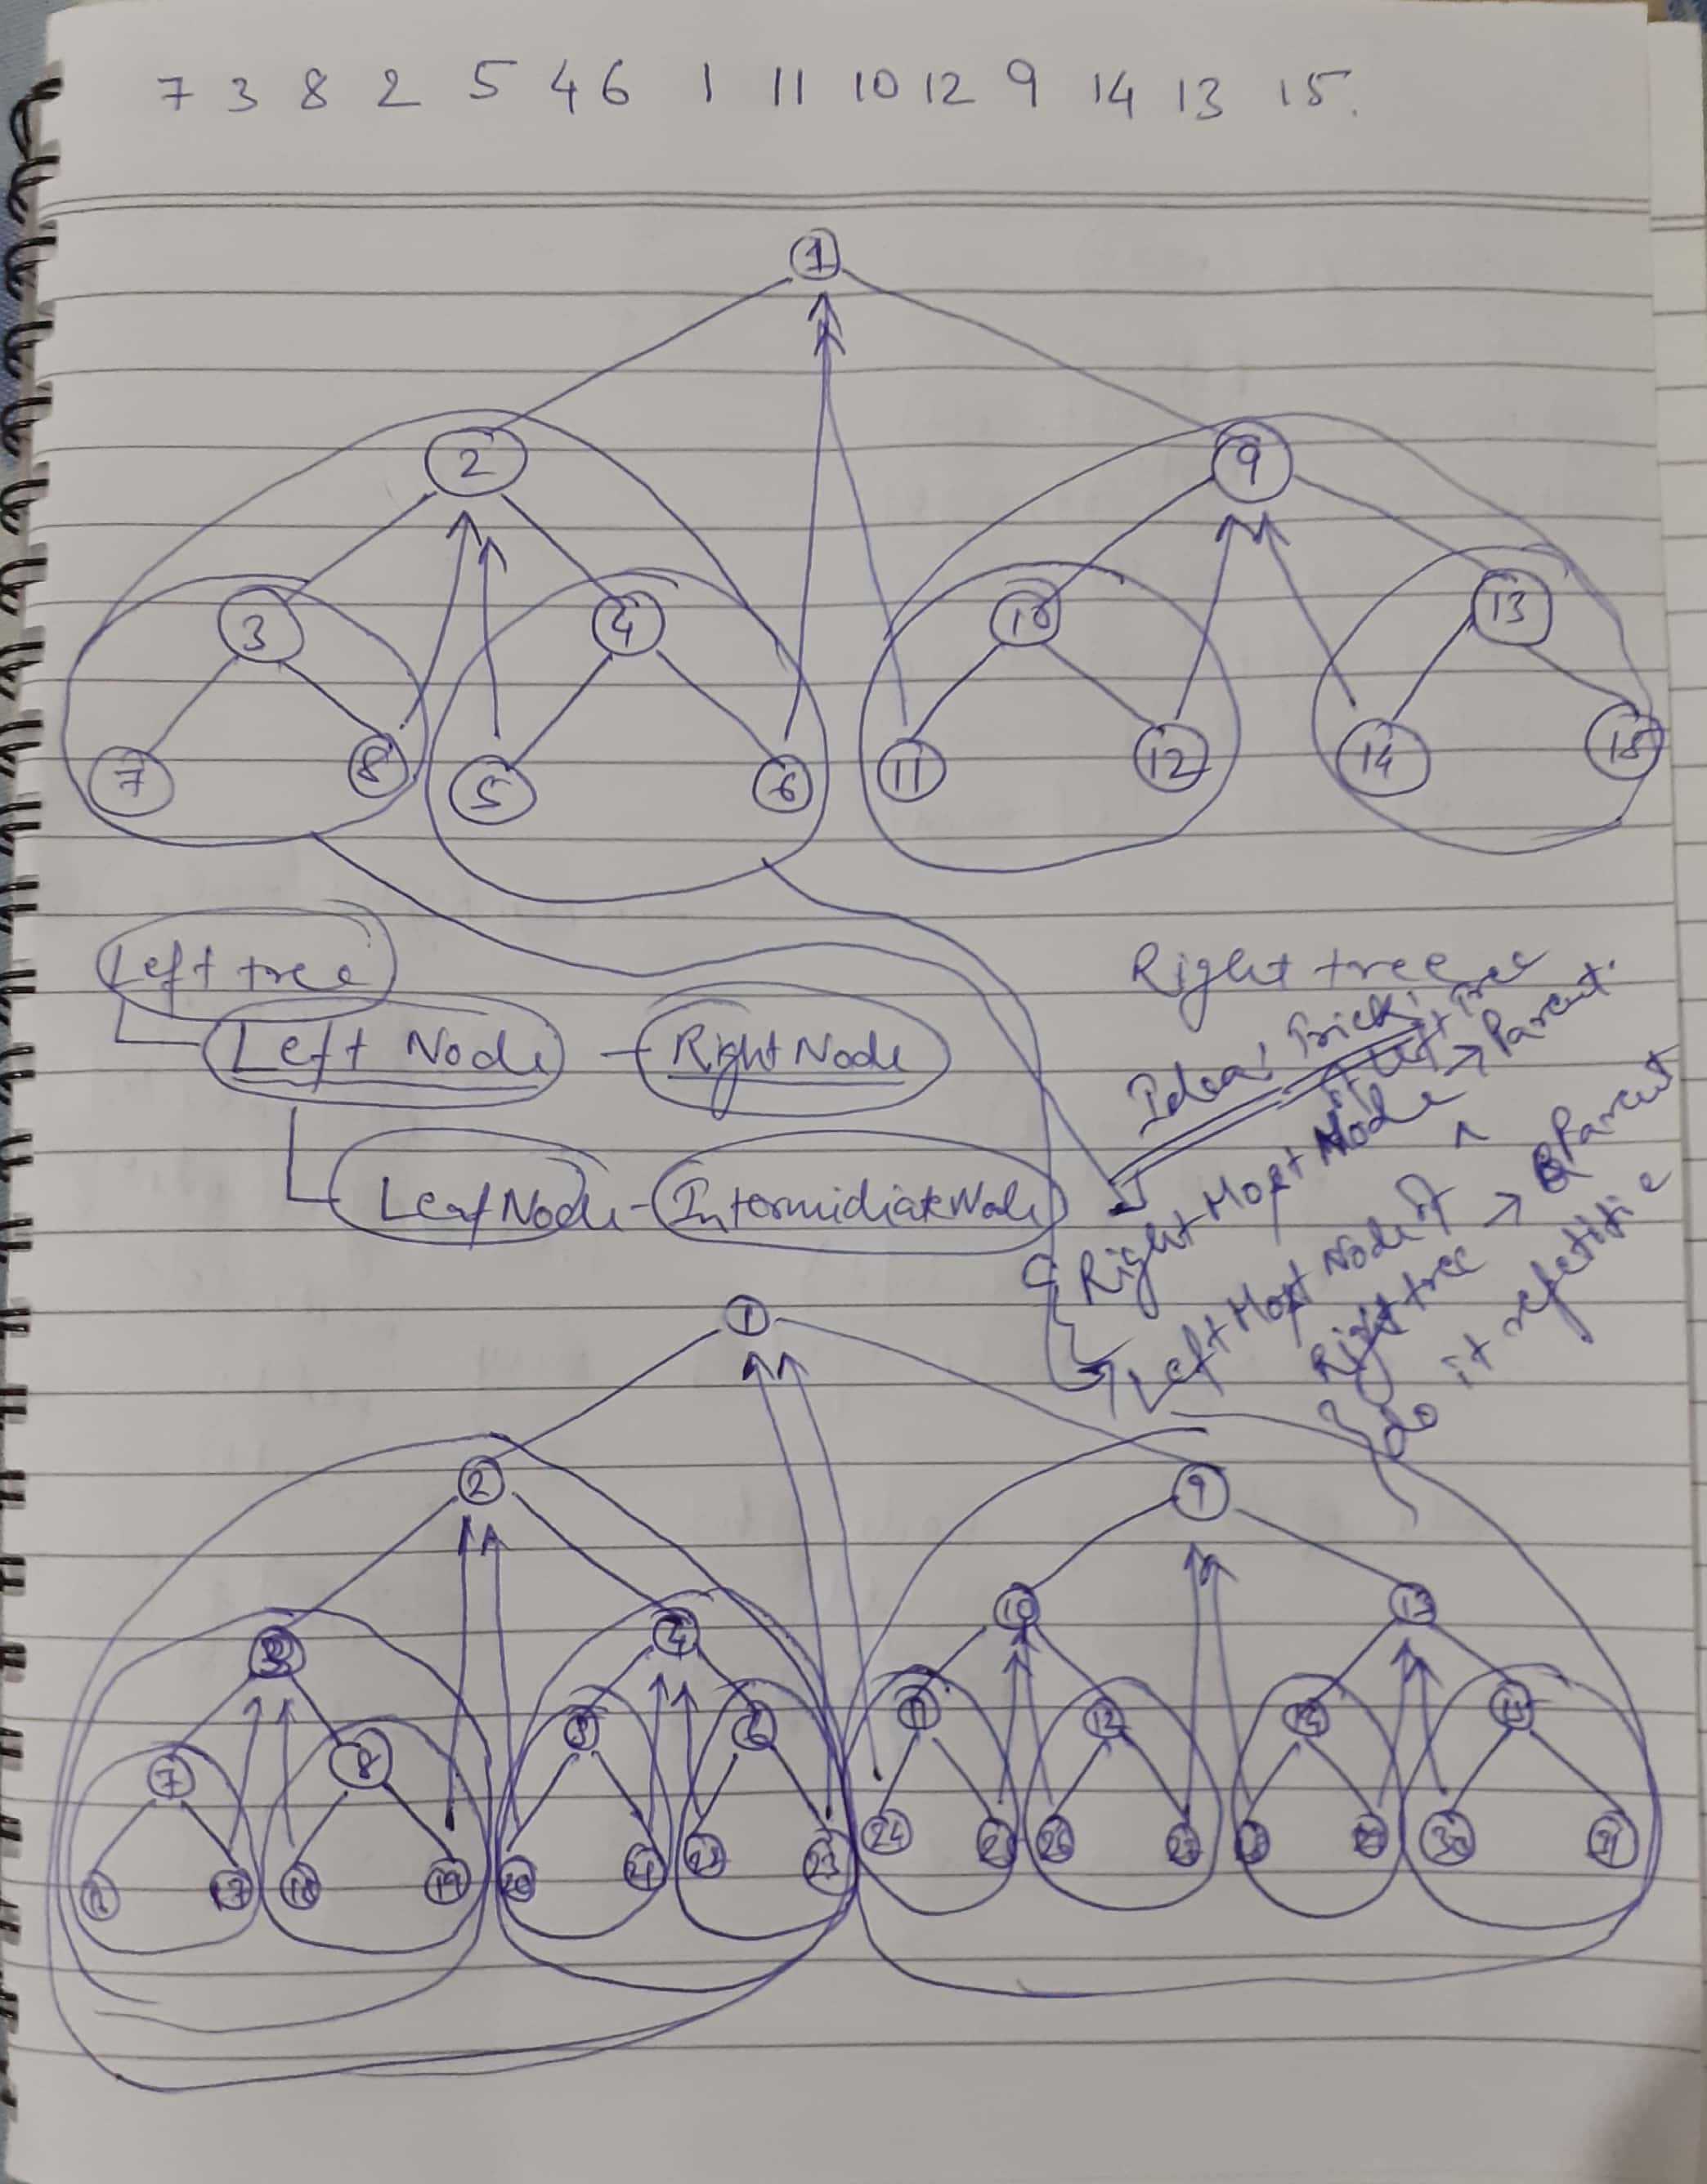 7 3 8 2 5 4 6 1 11 10 12 9 14 13 15.
1
2 9
3 4 10 13
7 8 5 6 11 12 14 15
Left tree
Right tree
Left Node - Right Node
Leaf Node - Intermidiate Node
Idea! Trick!
Right Most Node of Left Tree → Parent.
Left Most Node of Right tree → Parent
do it repetitive
1
2 9
3 4 10 13
7 8 5 6 11 12 14
17 18 19 20 21 22 23 24 25 26 27 30 31